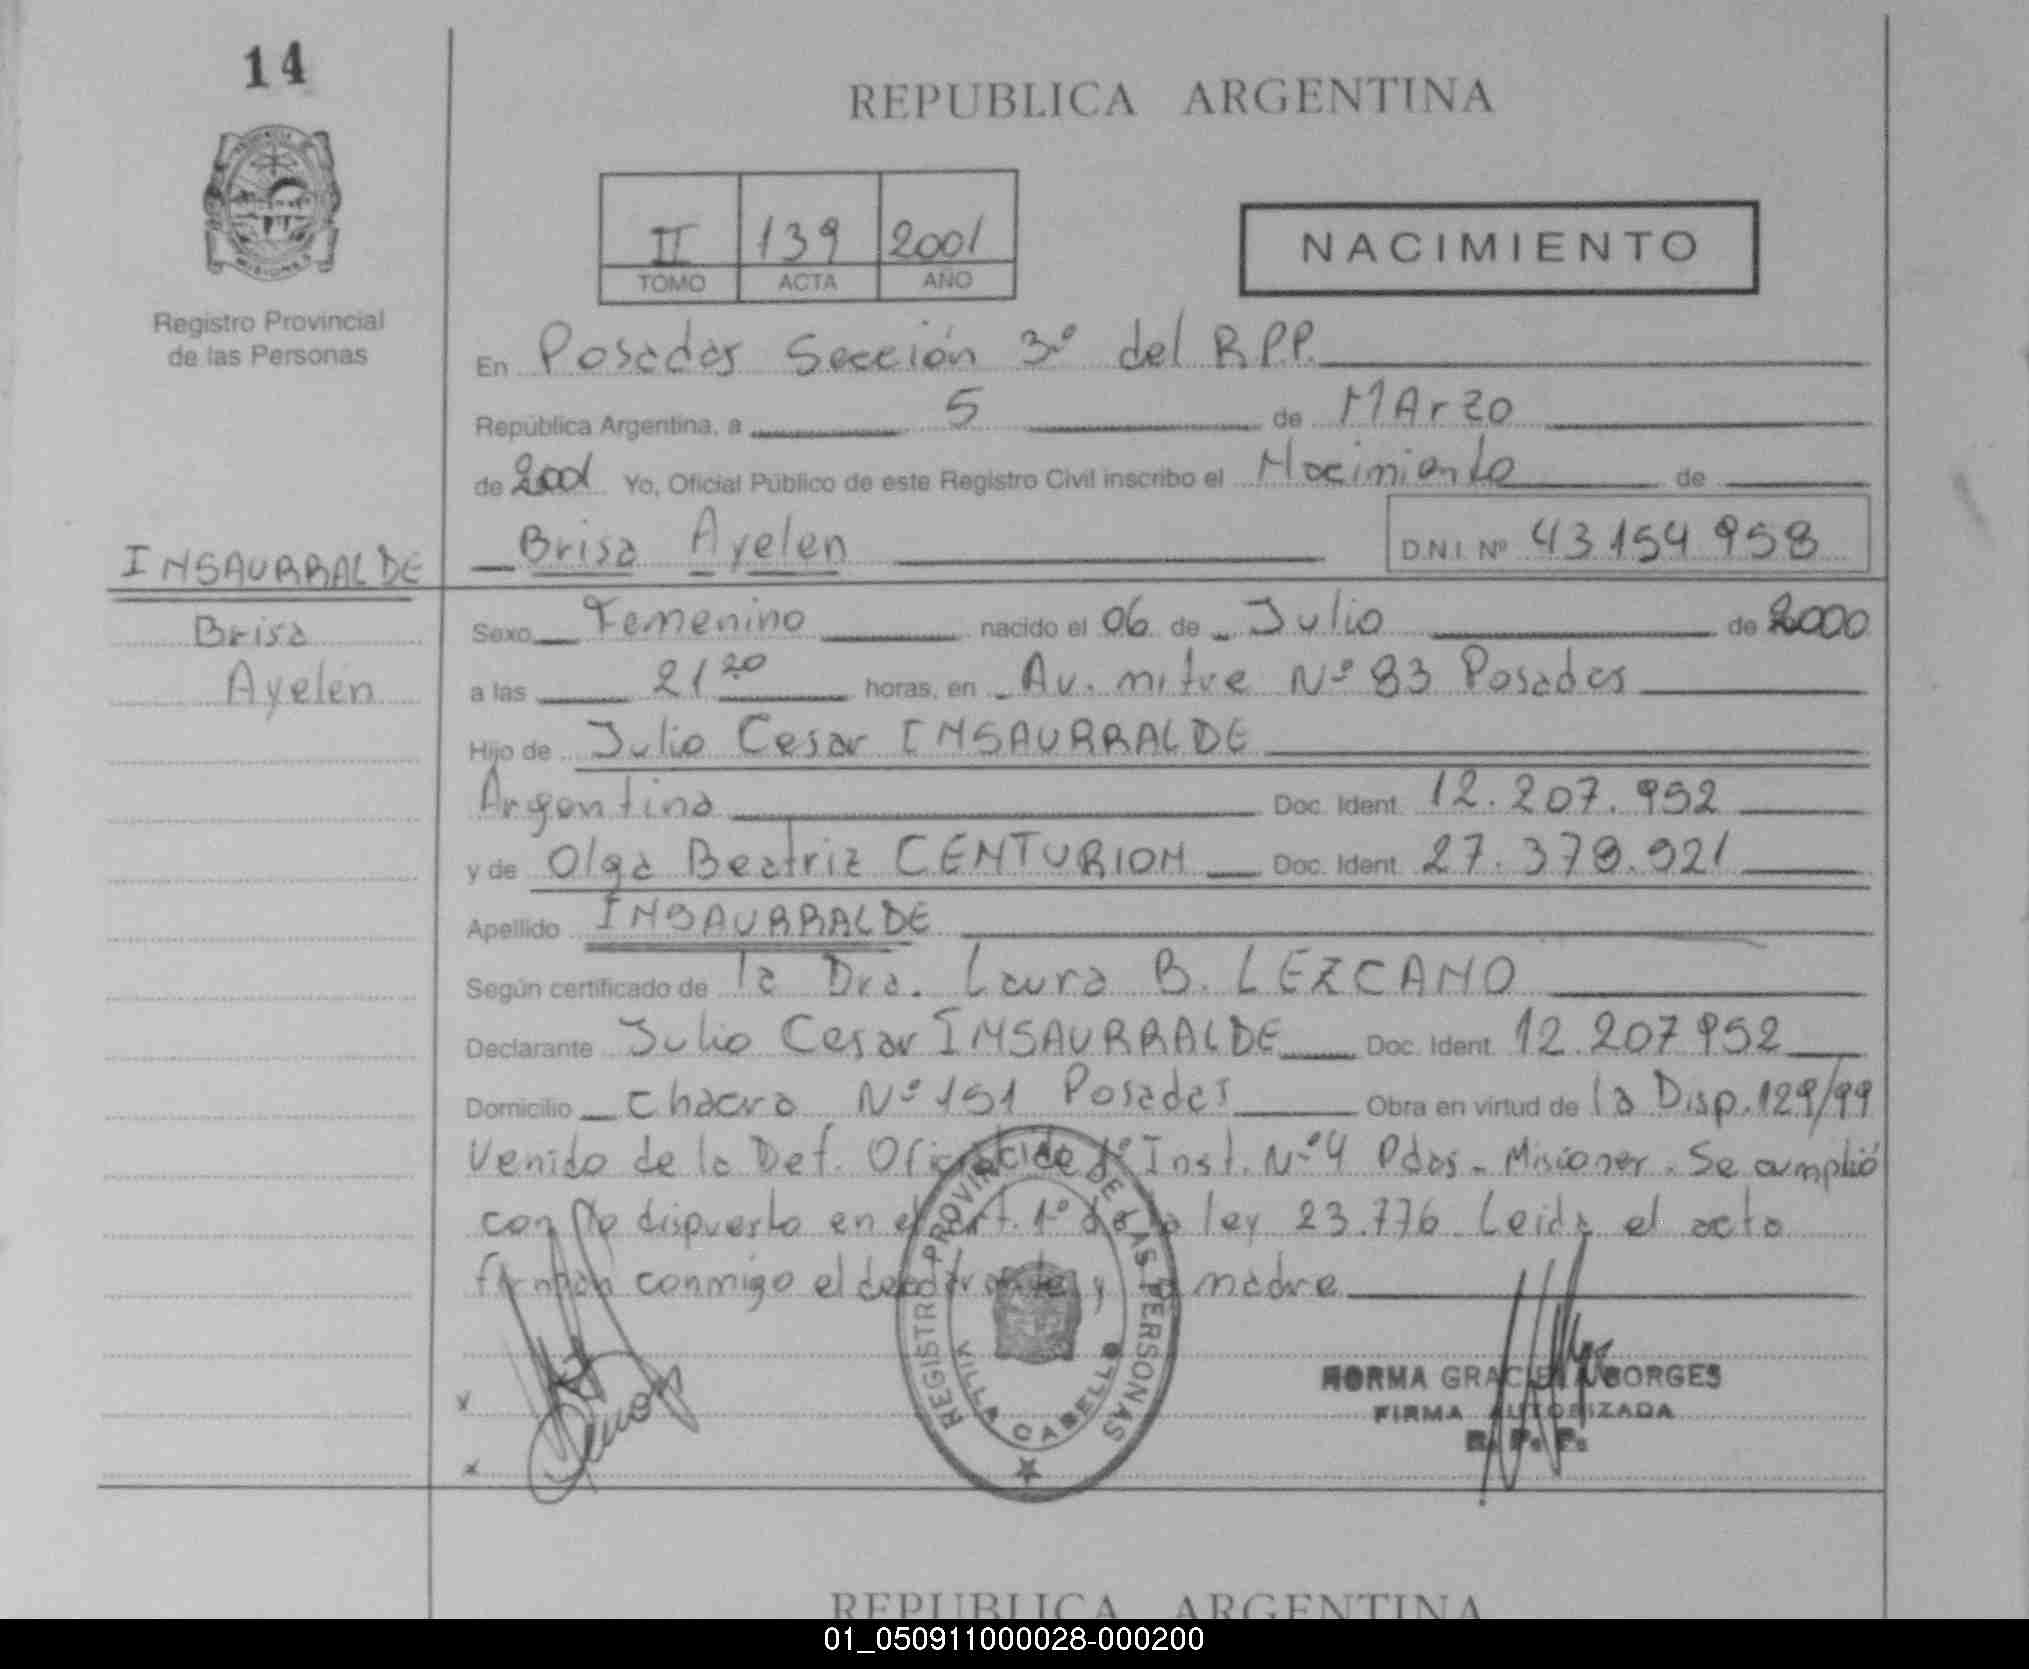 14
REPUBLICA ARGENTINA
PROVINCIA
MISIONES
Registro Provincial
de las Personas
II 139 2001
TOMO ACTA AÑO
NACIMIENTO
En Posadas Sección 3º del R.P.P.
República Argentina, a 5 de Marzo
de 2001 Yo, Oficial Público de este Registro Civil inscribo el Nacimiento de
Brisa Ayelen D.N.I. Nº 43 154 958
INSAURRALDE
Brisa
Ayelen
Sexo Femenino nacido el 06 de Julio de 2000
a las 21 20 horas, en Av. mitre Nº 83 Posadas
Hijo de Julio Cesar INSAURRALDE
Argentina Doc. Ident. 12.207.952
y de Olga Beatriz CENTURION Doc. Ident. 27.378.921
Apellido INSAURRALDE
Según certificado de la Dra. Laura B. LEZCANO
Declarante Julio Cesar INSAURRALDE Doc. Ident. 12.207 952
Domicilio Chacra Nº 151 Posadas Obra en virtud de la Disp. 129/99
Venido de la Def. Oficial de 1º Inst. Nº 4 Pdas - Misiones. Se cumplió
con lo dispuesto en el art. 1º de la ley 23.776. Leida el acta
firman conmigo el declarante y la madre
REGISTRO PROVINCIAL DE LAS PERSONAS
VILLA CABELLO
NORMA GRACIELA BORGES
FIRMA AUTORIZADA
R. P. P.
REPUBLICA ARGENTINA
01_050911000028-000200